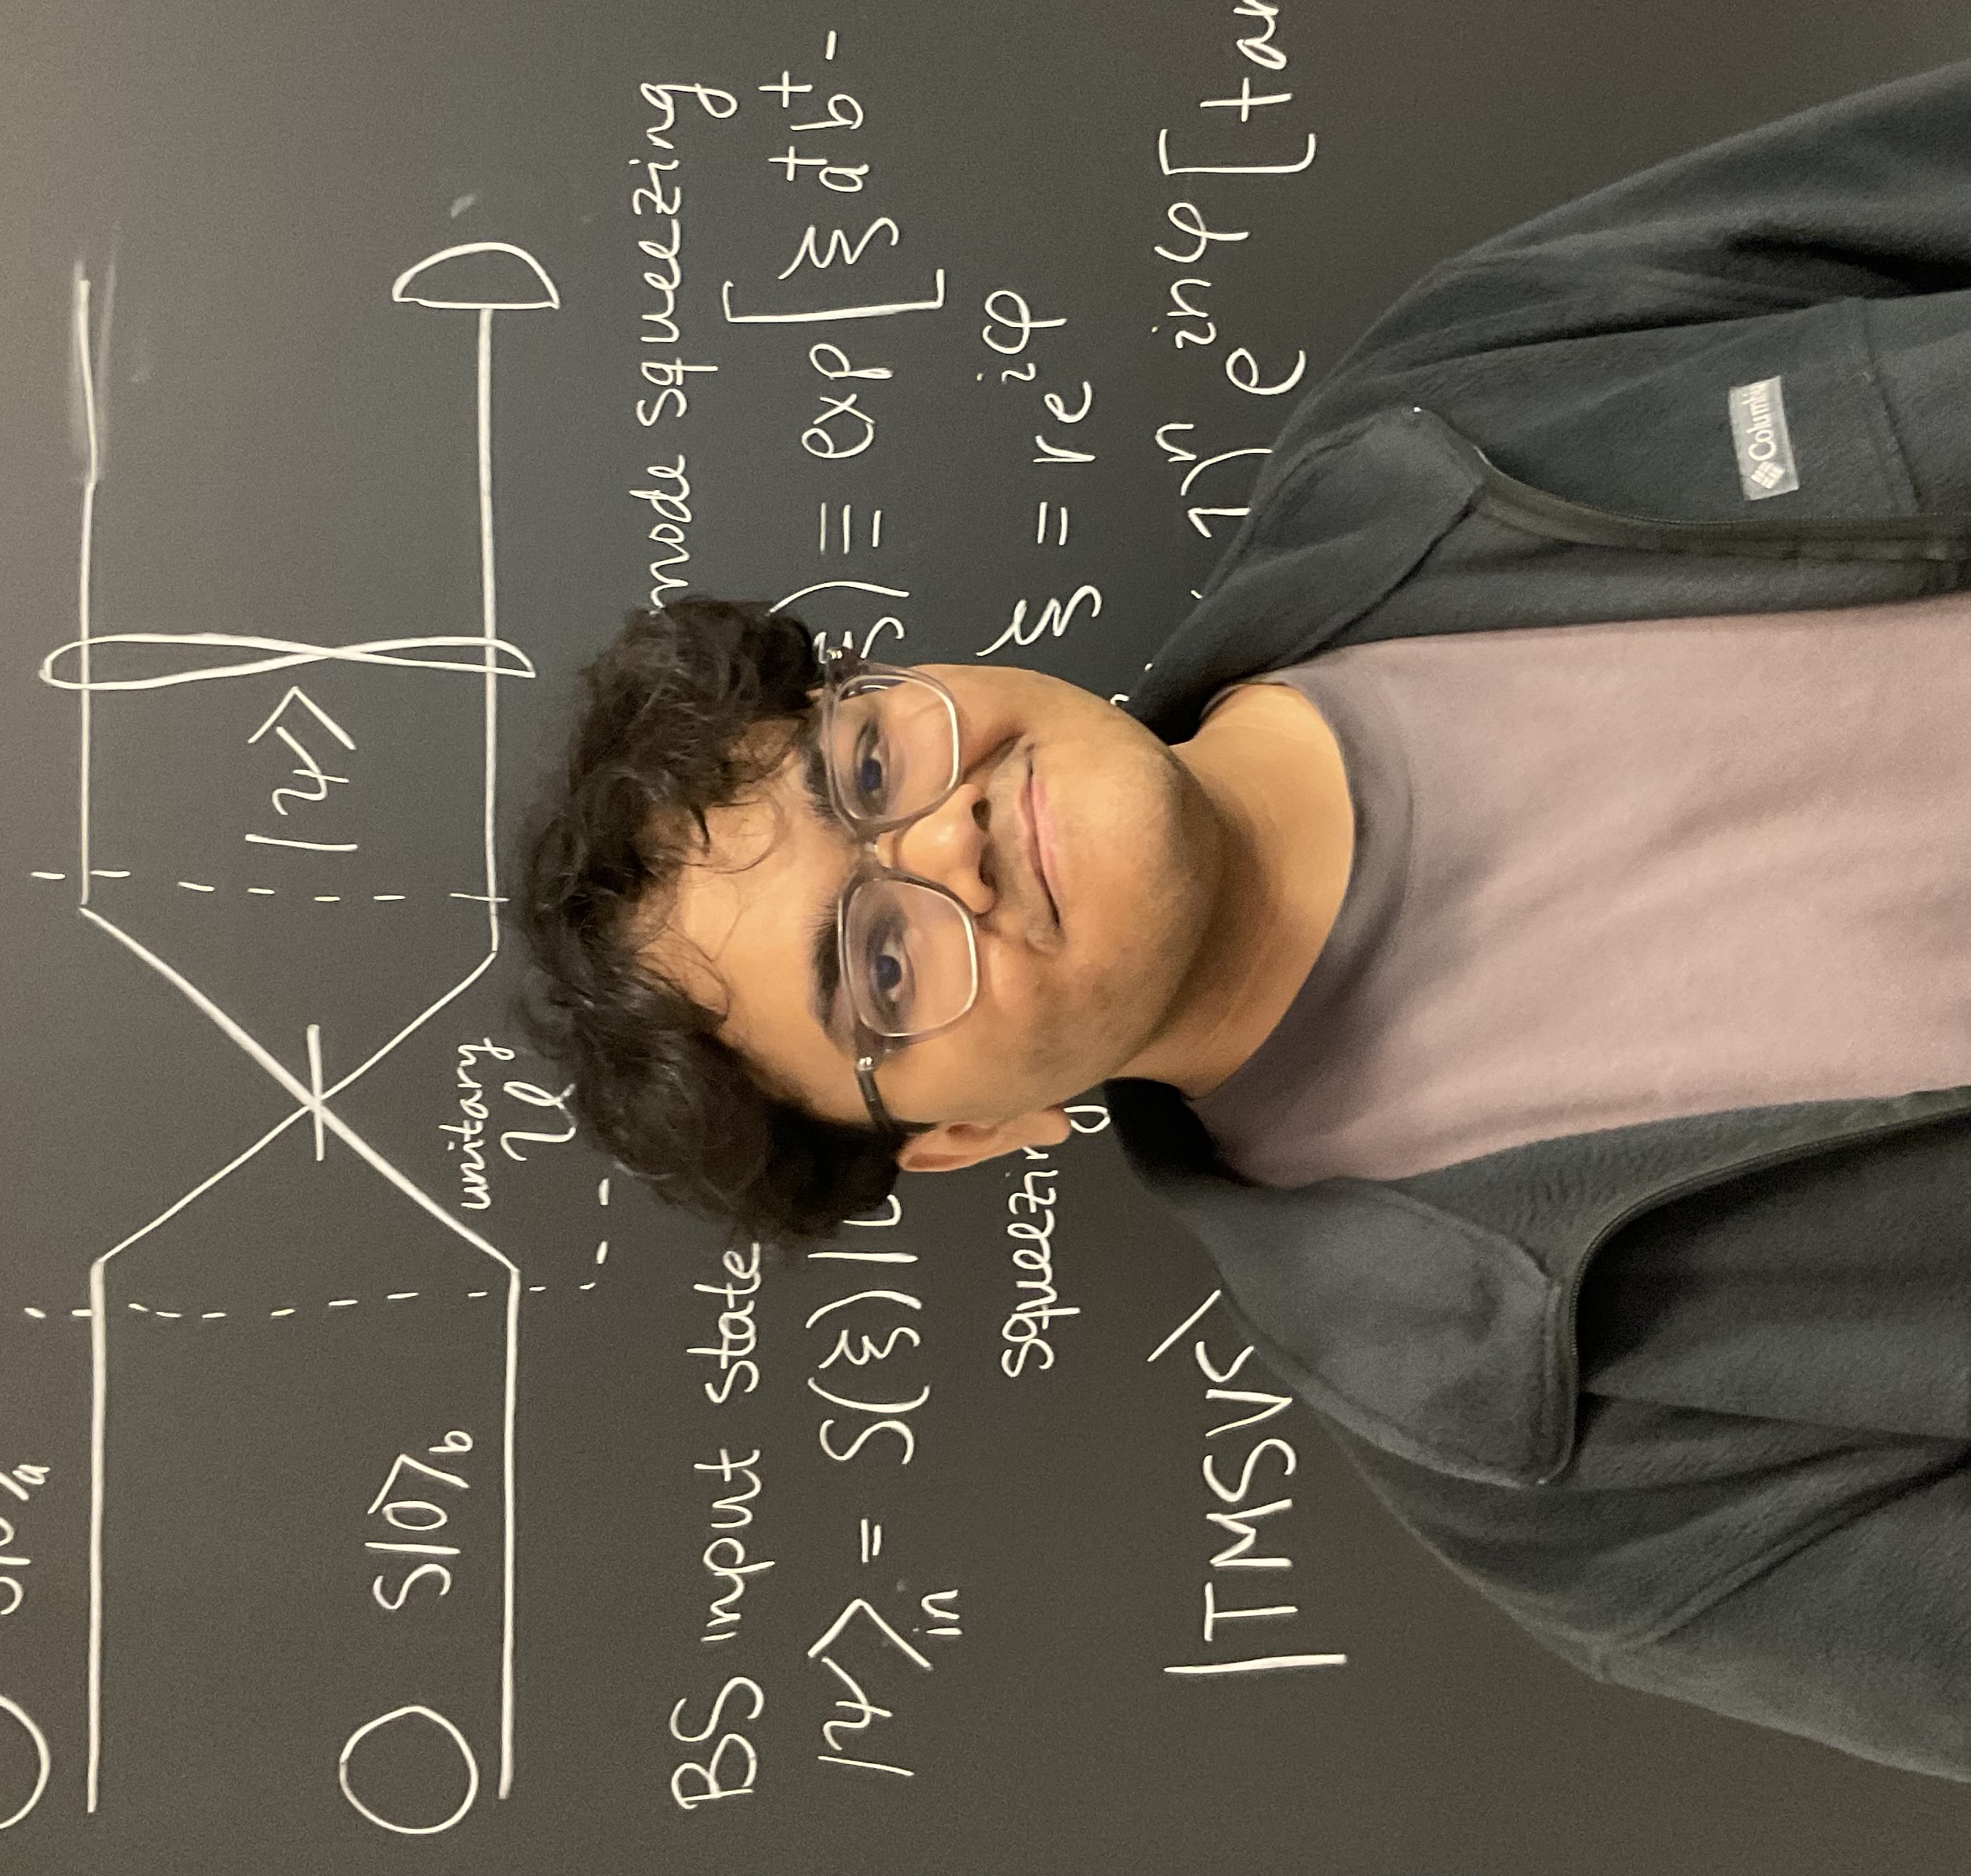 S|0⟩a
S|0⟩b
|ψ⟩
unitary
U
BS input state
mode squeezing
|ψ⟩in = S(ξ)|
ξ) ≡ exp[ξ a†b† -
squeezing
ξ = re^{iφ}
|TMSVS⟩
1)^n e^{inφ} [tan
Columbia